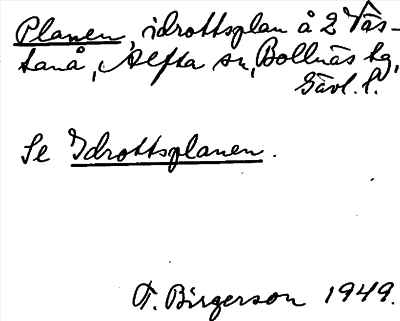 Planen, idrottsplan å 2 Väs-
tanå, Alfta sn, Bollnäs tg,
Gävl. l.
Se Idrottsplanen.
T. Birgerson 1949.